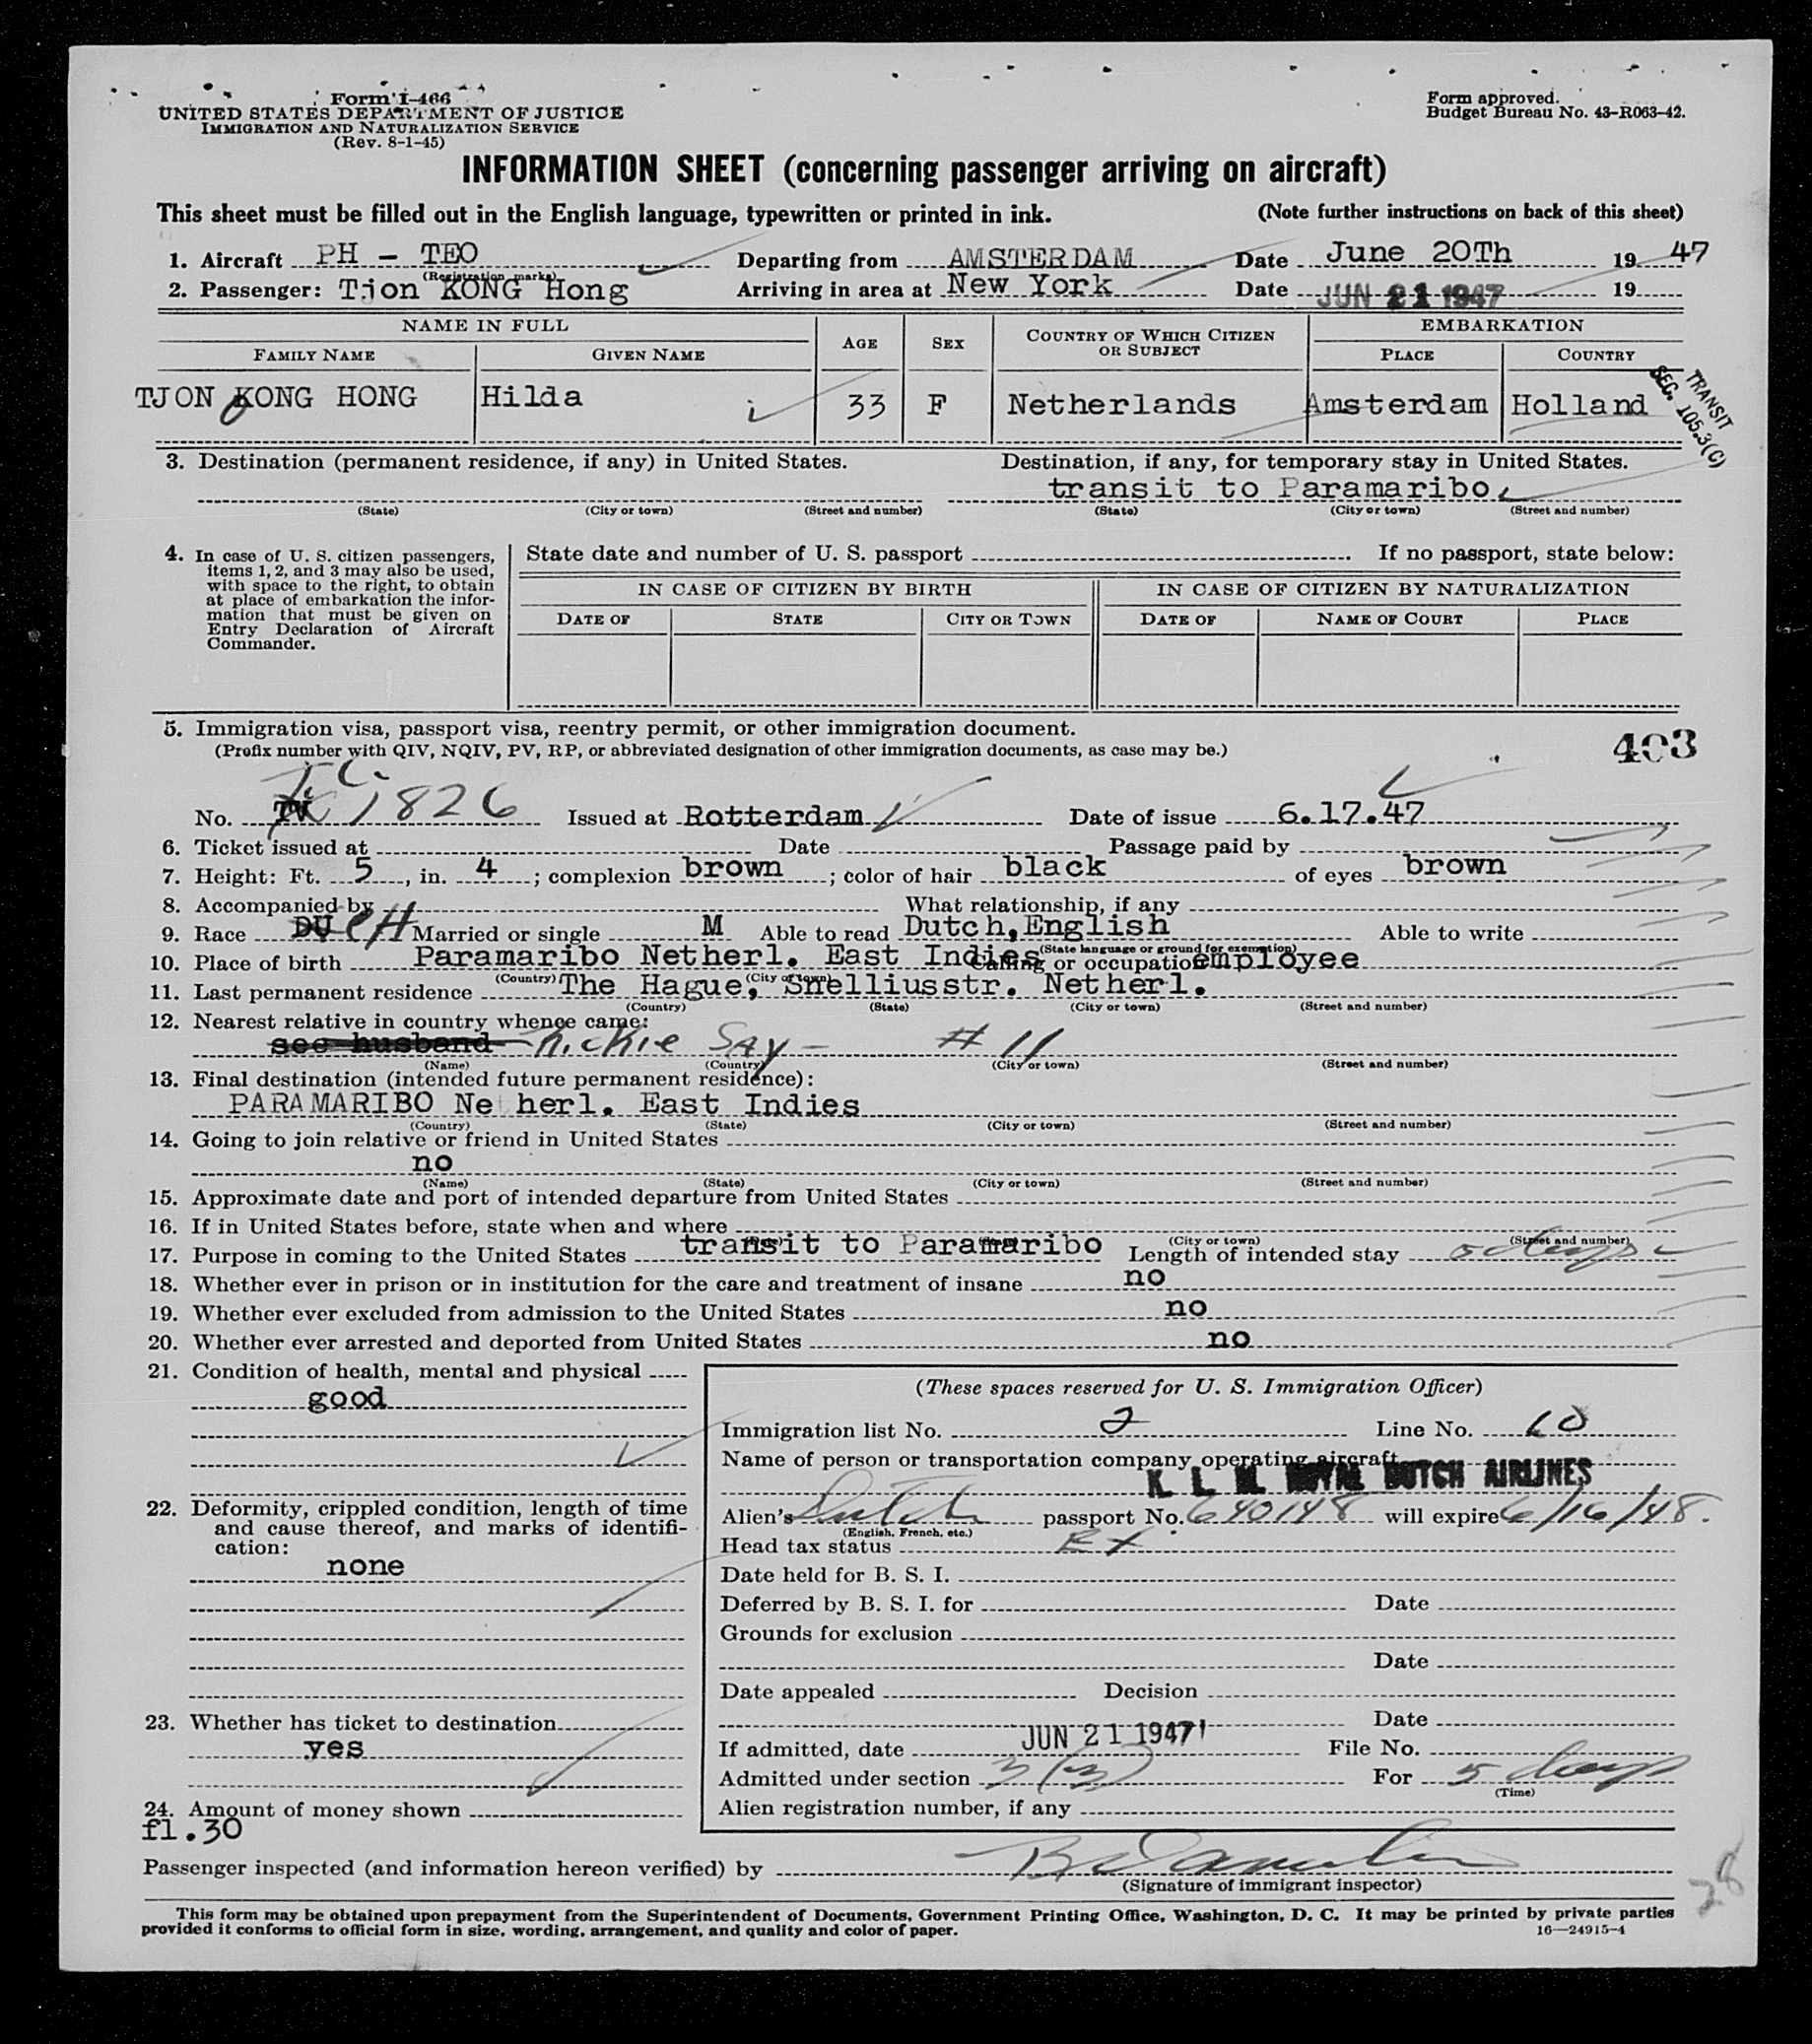 Form I-466
UNITED STATES DEPARTMENT OF JUSTICE
IMMIGRATION AND NATURALIZATION SERVICE
(Rev. 8-1-45)
Form approved.
Budget Bureau No. 43-R063-42.
INFORMATION SHEET (concerning passenger arriving on aircraft)
This sheet must be filled out in the English language, typewritten or printed in ink. (Note further instructions on back of this sheet)
1. Aircraft PH - TEO Departing from AMSTERDAM Date June 20Th 1947
(Registration marks)
2. Passenger: Tjon KONG Hong Arriving in area at New York Date JUN 21 1947 19
NAME IN FULL AGE SEX COUNTRY OF WHICH CITIZEN OR SUBJECT EMBARKATION
FAMILY NAME GIVEN NAME PLACE COUNTRY
TJON KONG HONG Hilda 33 F Netherlands Amsterdam Holland
TRANSIT
SEC. 105.3(C)
3. Destination (permanent residence, if any) in United States. Destination, if any, for temporary stay in United States.
transit to Paramaribo
(State) (City or town) (Street and number) (State) (City or town) (Street and number)
4. In case of U. S. citizen passengers, items 1, 2, and 3 may also be used, with space to the right, to obtain at place of embarkation the information that must be given on Entry Declaration of Aircraft Commander.
State date and number of U. S. passport . If no passport, state below:
IN CASE OF CITIZEN BY BIRTH IN CASE OF CITIZEN BY NATURALIZATION
DATE OF STATE CITY OR TOWN DATE OF NAME OF COURT PLACE
5. Immigration visa, passport visa, reentry permit, or other immigration document.
(Prefix number with QIV, NQIV, PV, RP, or abbreviated designation of other immigration documents, as case may be.)
403
T.C.
No. TV 1826 Issued at Rotterdam Date of issue 6.17.47
6. Ticket issued at Date Passage paid by
7. Height: Ft. 5, in. 4; complexion brown; color of hair black of eyes brown
8. Accompanied by What relationship, if any
9. Race DU CH Married or single M Able to read Dutch,English Able to write
(State language or ground for exemption)
10. Place of birth Paramaribo Netherl. East Indies Calling or occupation employee
(Country) (City or town)
11. Last permanent residence The Hague, Snelliusstr. Netherl.
(Country) (State) (City or town) (Street and number)
12. Nearest relative in country whence came:
see husband Say - # 11
(Name) (Country) (City or town) (Street and number)
13. Final destination (intended future permanent residence):
PARAMARIBO Netherl. East Indies
(Country) (State) (City or town) (Street and number)
14. Going to join relative or friend in United States
no
(Name) (State) (City or town) (Street and number)
15. Approximate date and port of intended departure from United States
16. If in United States before, state when and where
(City or town) (Street and number)
17. Purpose in coming to the United States transit to Paramaribo Length of intended stay 5 days
18. Whether ever in prison or in institution for the care and treatment of insane no
19. Whether ever excluded from admission to the United States no
20. Whether ever arrested and deported from United States no
21. Condition of health, mental and physical
good
22. Deformity, crippled condition, length of time and cause thereof, and marks of identification:
none
23. Whether has ticket to destination
yes
24. Amount of money shown
fl.30
(These spaces reserved for U. S. Immigration Officer)
Immigration list No. 2 Line No. 10
Name of person or transportation company operating aircraft
K L M ROYAL DUTCH AIRLINES
Alien's Dutch passport No. 640148 will expire 6/16/48.
(English, French, etc.)
Head tax status EX
Date held for B. S. I.
Deferred by B. S. I. for Date
Grounds for exclusion
Date
Date appealed Decision
Date
If admitted, date JUN 21 1947 File No.
Admitted under section 3(3) For 5 days
(Time)
Alien registration number, if any
Passenger inspected (and information hereon verified) by
(Signature of immigrant inspector)
28
This form may be obtained upon prepayment from the Superintendent of Documents, Government Printing Office, Washington, D. C. It may be printed by private parties
provided it conforms to official form in size, wording, arrangement, and quality and color of paper. 16—24915-4